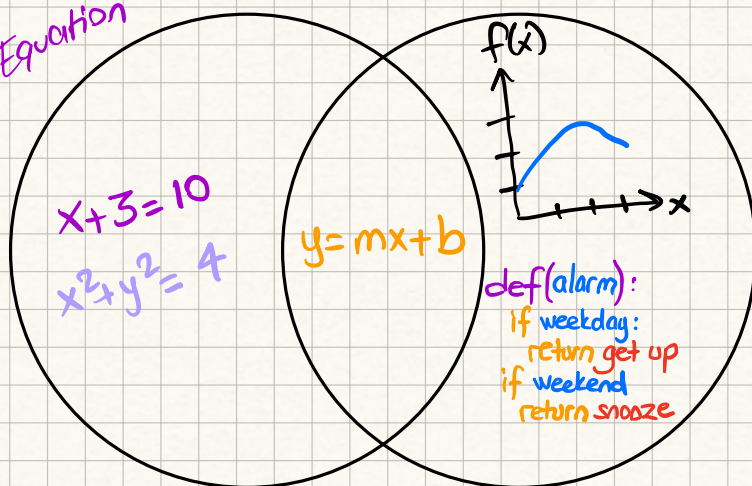 Equation
f(x)
x
x+3=10
x²+y²=4
y=mx+b
def(alarm):
if weekday:
return get up
if weekend
return snooze